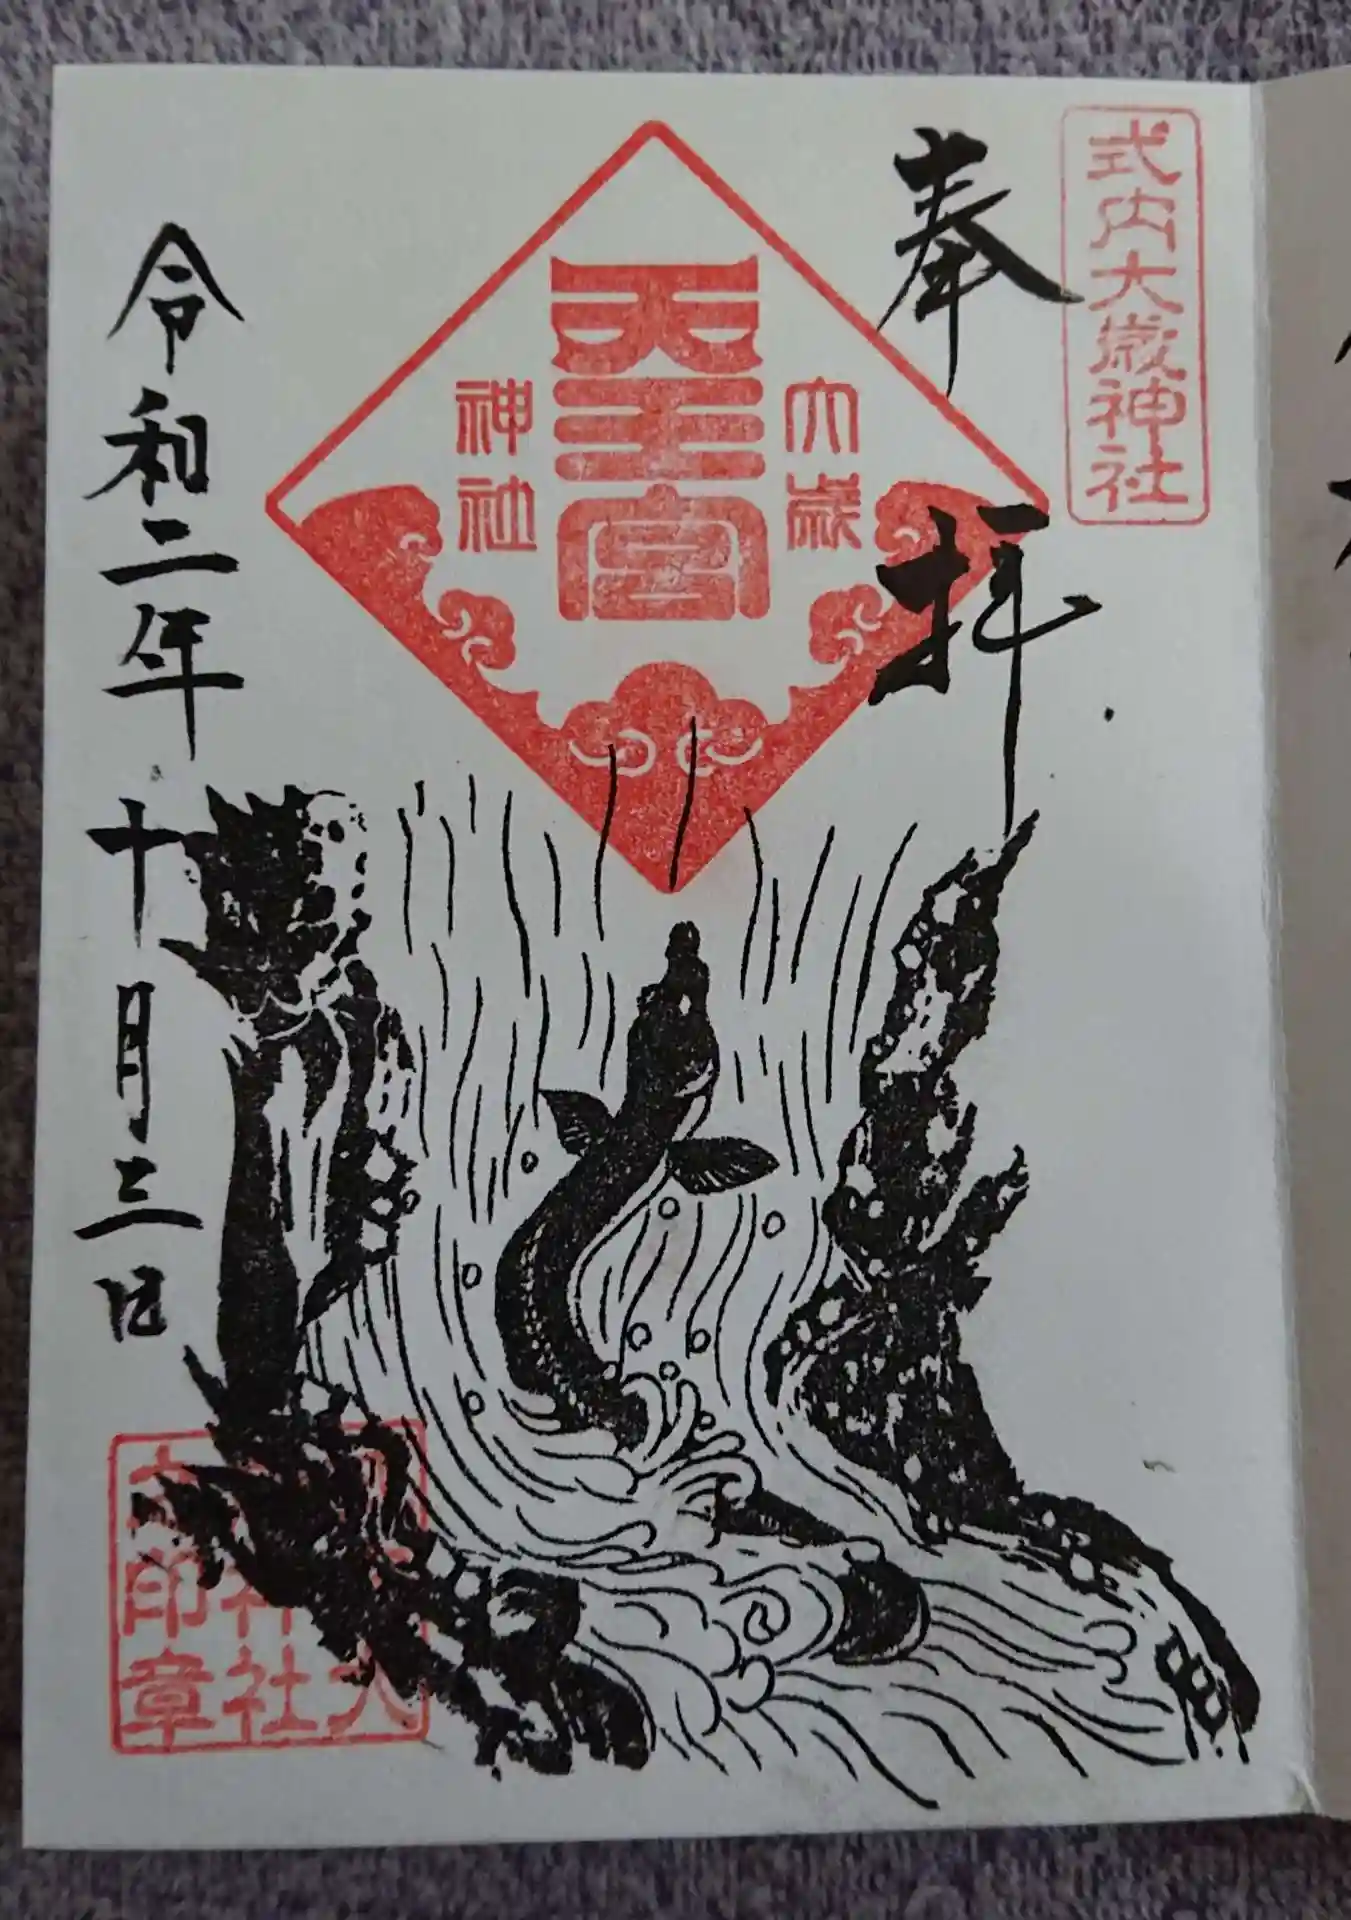 式内大歳神社
奉拝
大歳
天王宮
神社
令和二年十月三日
神社
印章